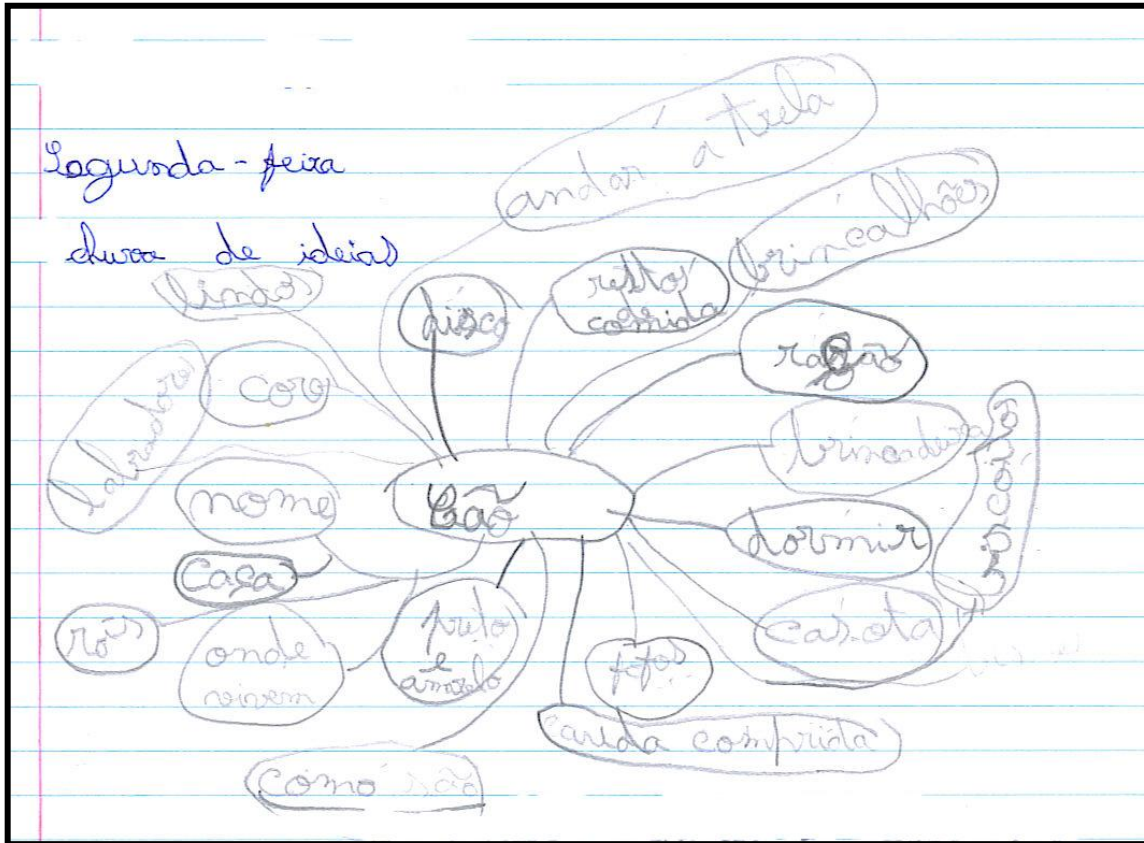 Segunda-feira
chuva de ideias
andar á trela
brincalhões
lindos
disco
restos de
comida
ração
labradores
coro
brincadeira
nome
Cão
dormir
caça
rãs
onde
vivem
preto
e
amarelo
fofos
casota
comprida
como são